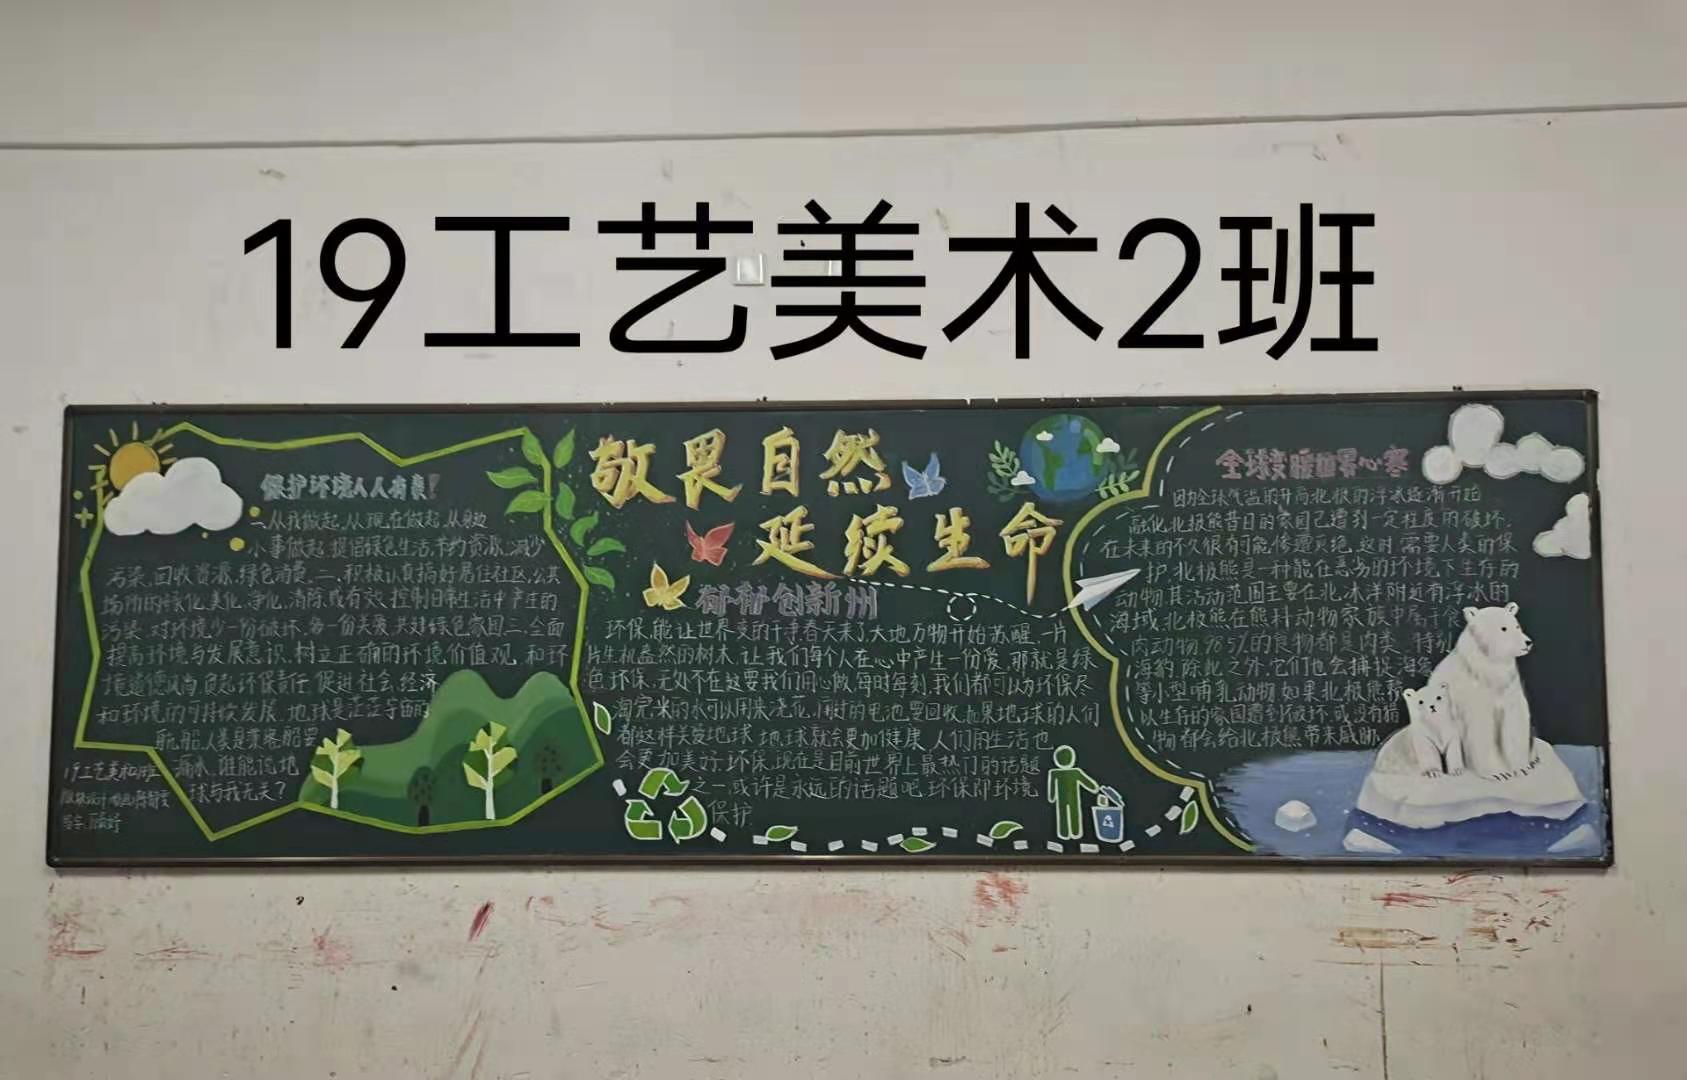 19工艺美术2班
敬畏自然
延续生命
保护环境人人有责!
一、从我做起,从现在做起,从身边
小事做起,提倡绿色生活,节约资源,减少
污染,回收资源,绿色消费。二、积极认真搞好居住社区,公共
场所的绿化,美化,净化,消除或有效控制日常生活中产生的
污染,对环境少一份破坏,多一份关爱,共建绿色家园。三、全面
提高环境与发展意识,树立正确的环境价值观,和环
境道德风尚,负起环保责任,促进社会,经济
和环境的可持续发展。地球是茫茫宇宙的
航船,人类是乘客,船要
漏水,谁能说地
球与我无关?
19工艺美术2班
创新州
环保,能让世界变的干净,春天来了,大地万物开始苏醒,一片
片生机盎然的树木,让我们每个人在心中产生一份爱,那就是绿
色,环保,无处不在,这要我们用心做,每时每刻,我们都可以为环保尽
淘完米的水可以用来浇花,用过的电池要回收,如果地球的人们
都这样关爱地球,地球就会更加健康,人们的生活也
会更加美好,环保,现在是目前世界上最热门的话题
之一,或许是永远的话题吧,环保即环境
保护
全球变暖世界心寒
因为全球气温的升高,北极的浮冰逐渐开始
融化,北极熊昔日的家园已遭到一定程度的破坏,
在未来的不久很有可能惨遭灭绝,这时需要人类的保
护,北极熊是一种能在恶劣的环境下生存的
动物,其活动范围主要在北冰洋附近有浮冰的
海域,北极熊在熊科动物家族中属于食
肉动物,98.5%的食物都是肉类,特别
海豹,除此之外,它们也会捕捉海象
等小型哺乳动物,如果北极熊赖
以生存的家园遭到破坏,或没有猎
物都会给北极熊带来威胁